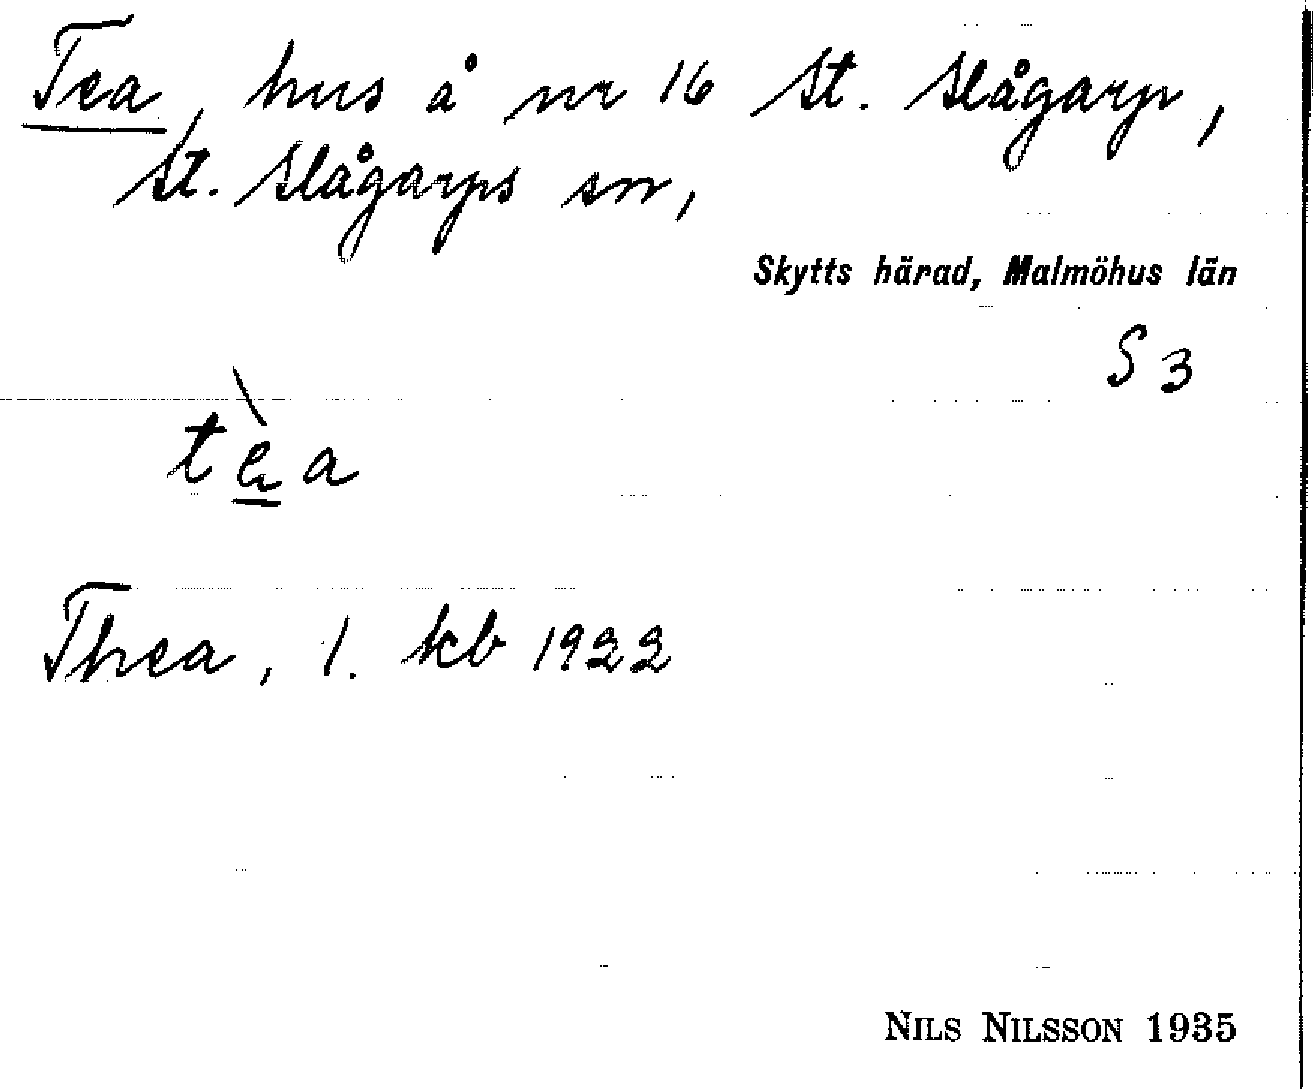 Tea, hus å nr 16 St. Slågarp,
St. Slågarps sn,
Skytts härad, Malmöhus län
S 3
tèa
Thea, l. kb 1922
NILS NILSSON 1935